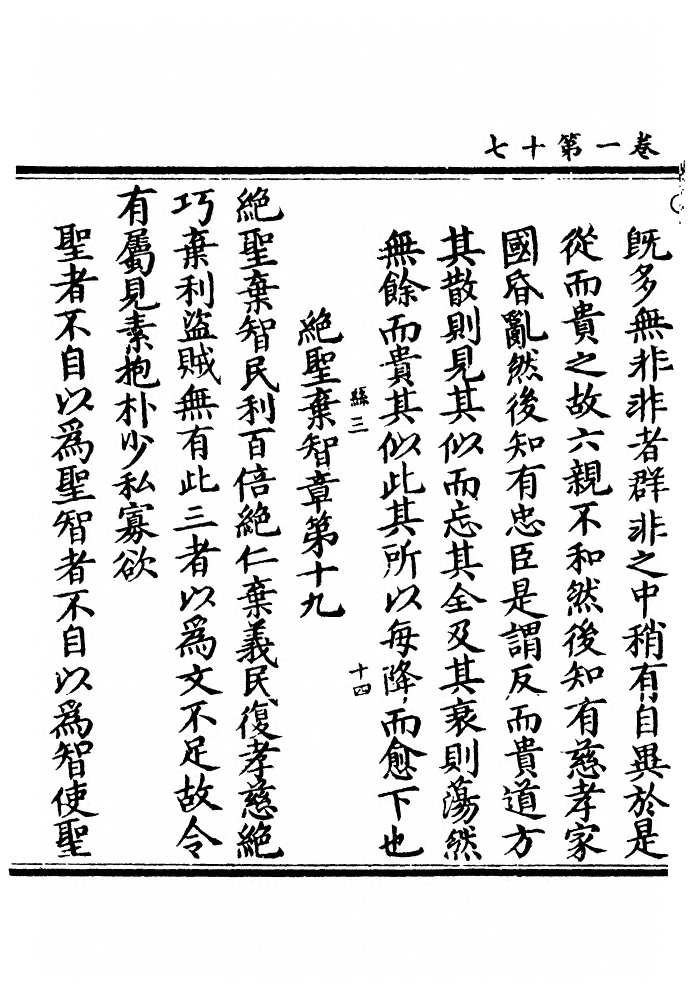 卷一第十七
既多無非非者群非之中稍有自異於是
從而貴之故六親不和然後知有慈孝家
國昏亂然後知有忠臣是謂反而貴道方
其散則見其似而忘其全及其衰則蕩然
無餘而貴其似此其所以每降而愈下也
緜三 十四
絕聖棄智章第十九
絕聖棄智民利百倍絕仁棄義民復孝慈絕
巧棄利盜賊無有此三者以為文不足故令
有屬見素抱朴少私寡欲
聖者不自以為聖智者不自以為智使聖